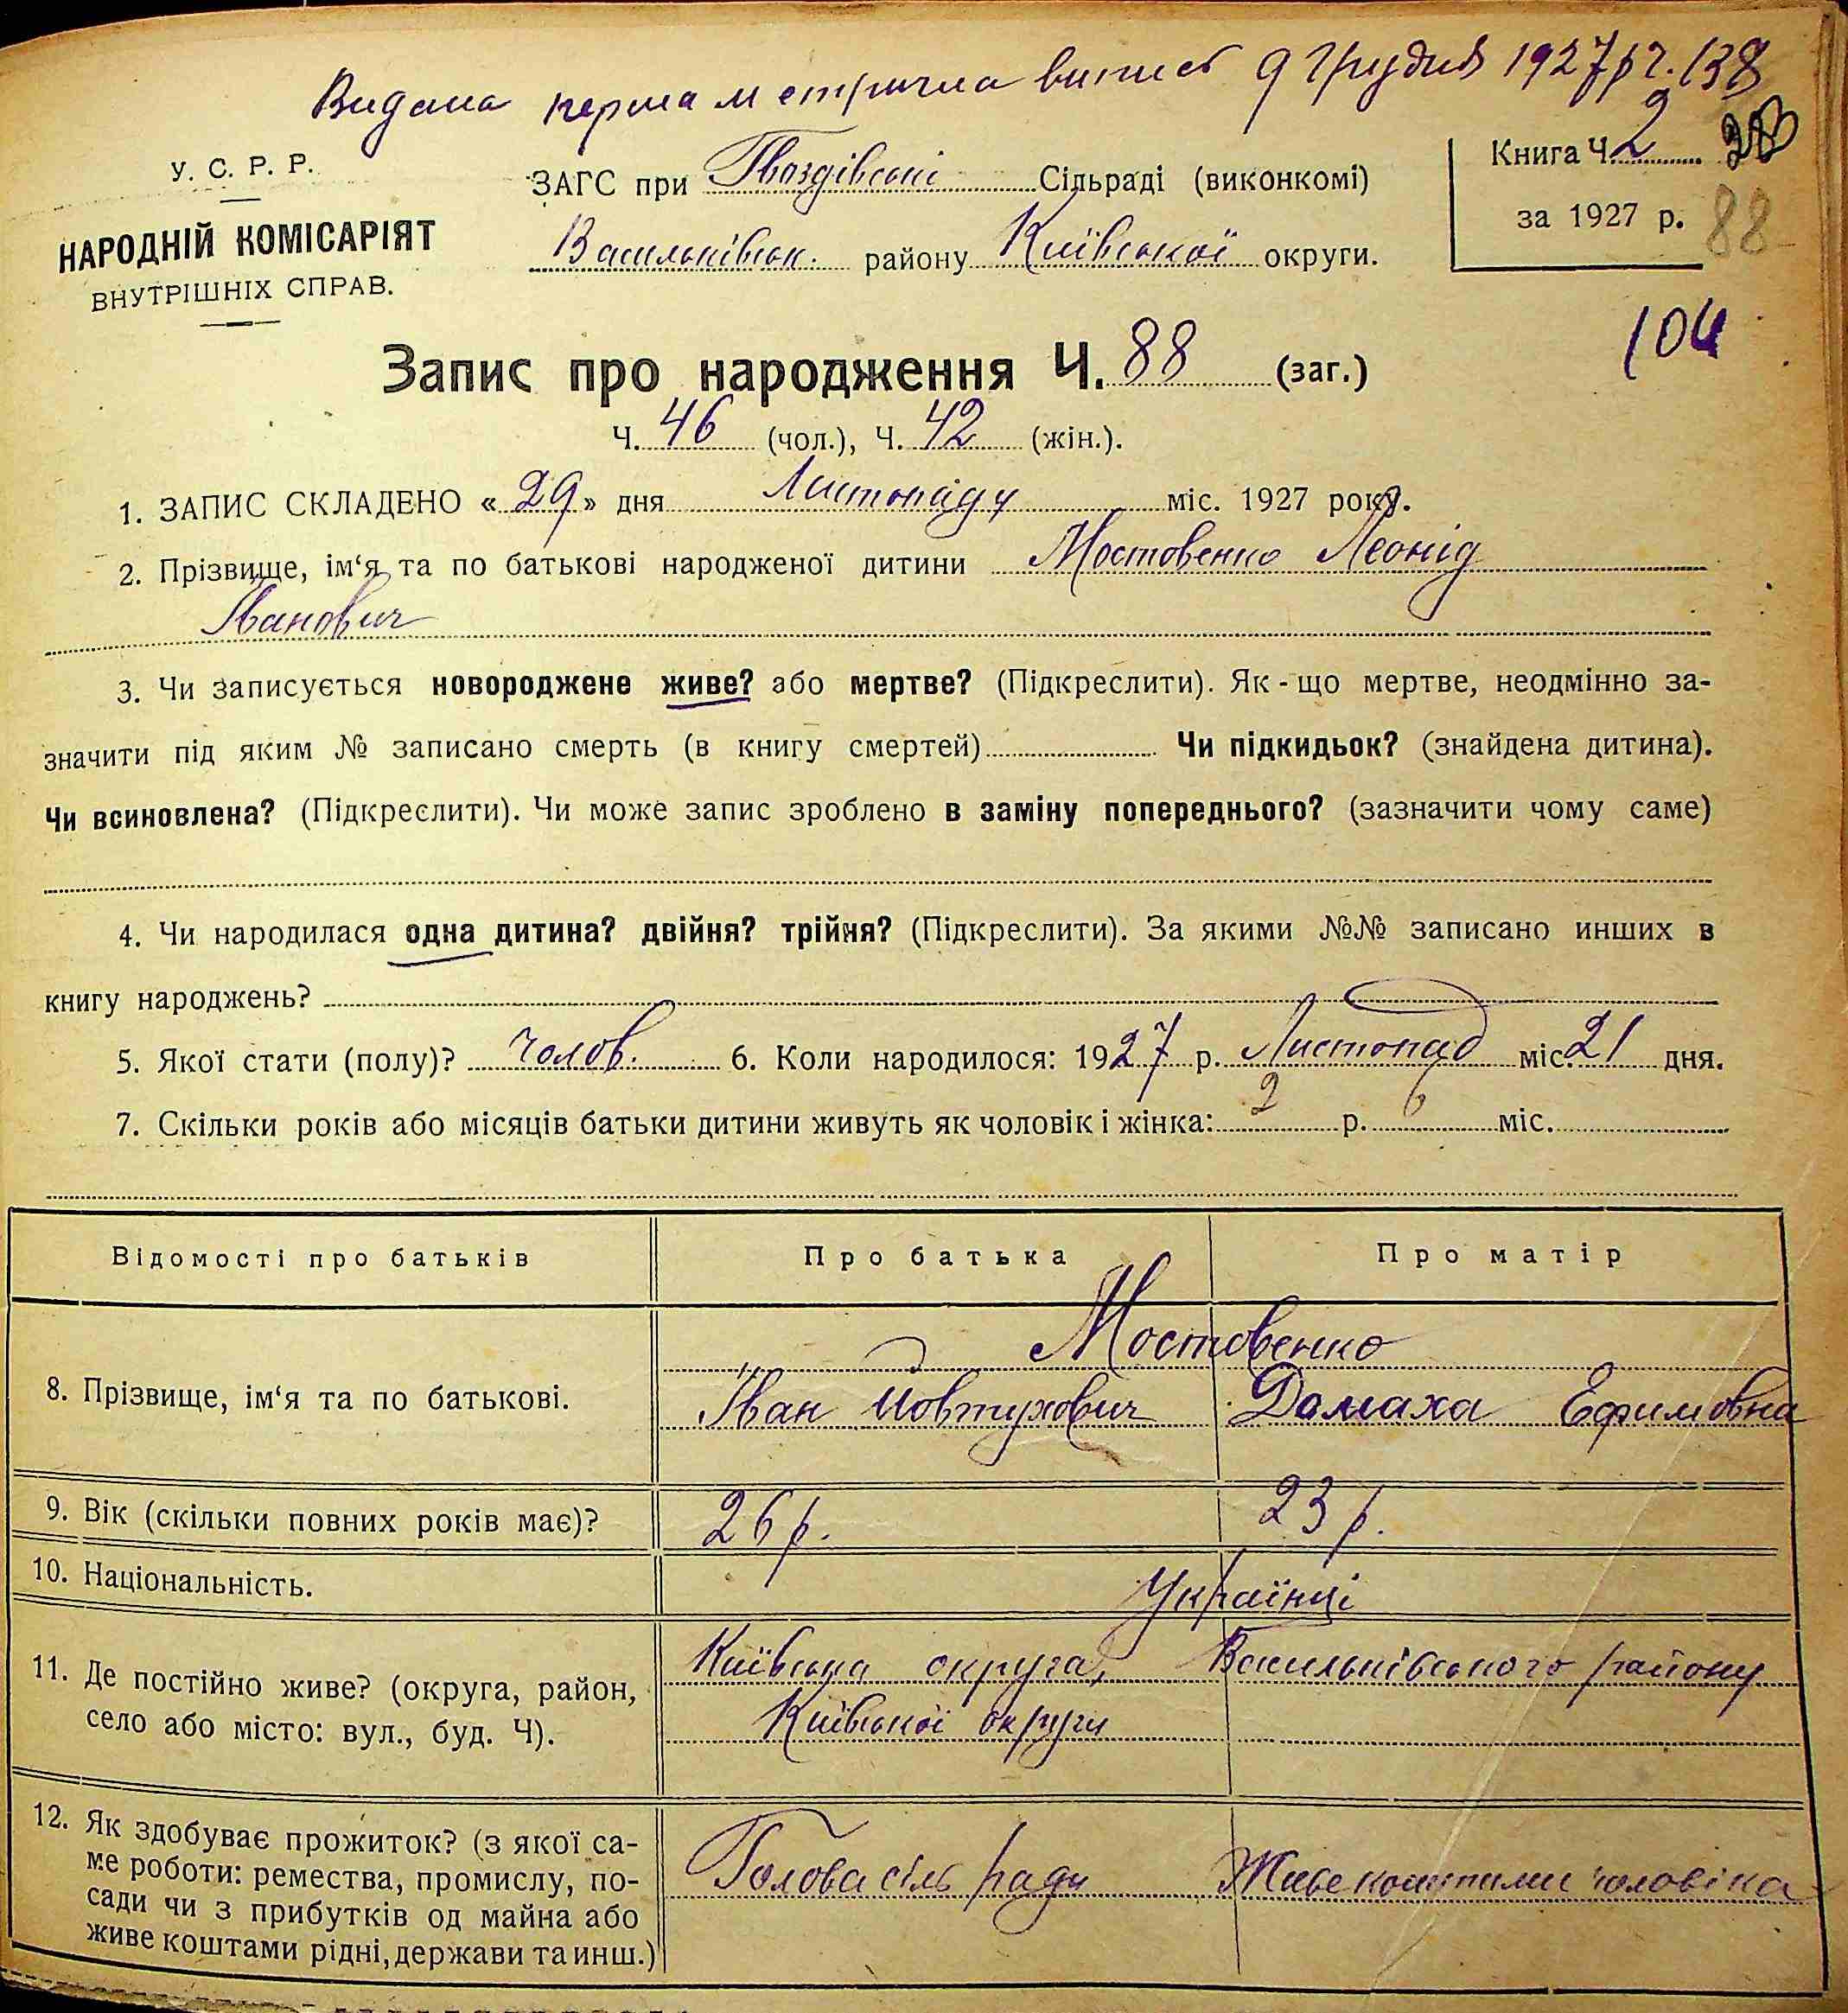 Видана перша метрична випись 9 грудня 1927 р ч. 138
У. С. Р. Р.
НАРОДНІЙ КОМІСАРІЯТ
ВНУТРІШНІХ СПРАВ.
ЗАГС при Гвоздівські Сільраді (виконкомі)
Васильківськ. району Київської округи.
Книга Ч. 2
за 1927 р. 88
104
Запис про народження Ч. 88 (заг.)
Ч. 46 (чол.), Ч. 42 (жін.).
1. ЗАПИС СКЛАДЕНО « 29 » дня Листопаду міс. 1927 року.
2. Прізвище, ім‘я та по батькові народженої дитини Мостовенко Леонід
Іванович
3. Чи записується новороджене живе? або мертве? (Підкреслити). Як-що мертве, неодмінно за-
значити під яким № записано смерть (в книгу смертей) Чи підкидьок? (знайдена дитина).
Чи всиновлена? (Підкреслити). Чи може запис зроблено в заміну попереднього? (зазначити чому саме)
4. Чи народилася одна дитина? двійня? трійня? (Підкреслити). За якими №№ записано инших в
книгу народжень?
5. Якої стати (полу)? чолов. 6. Коли народилося: 1927 р. Листопад міс. 21 дня.
7. Скільки років або місяців батьки дитини живуть як чоловік і жінка: 2 р. 6 міс.
Відомості про батьків Про батька Про матір
Мостовенко
8. Прізвище, ім‘я та по батькові. Іван Йовтухович Домаха Ефимовна
9. Вік (скільки повних років має)? 26 р. 23 р.
10. Національність. Українці
11. Де постійно живе? (округа, район, Київська округа, Васильківського району
село або місто: вул., буд. Ч). Київської округи
12. Як здобуває прожиток? (з якої са-
ме роботи: ремества, промислу, по- Голова сіль ради Живе коштами чоловіка
сади чи з прибутків од майна або
живе коштами рідні, держави та инш.)